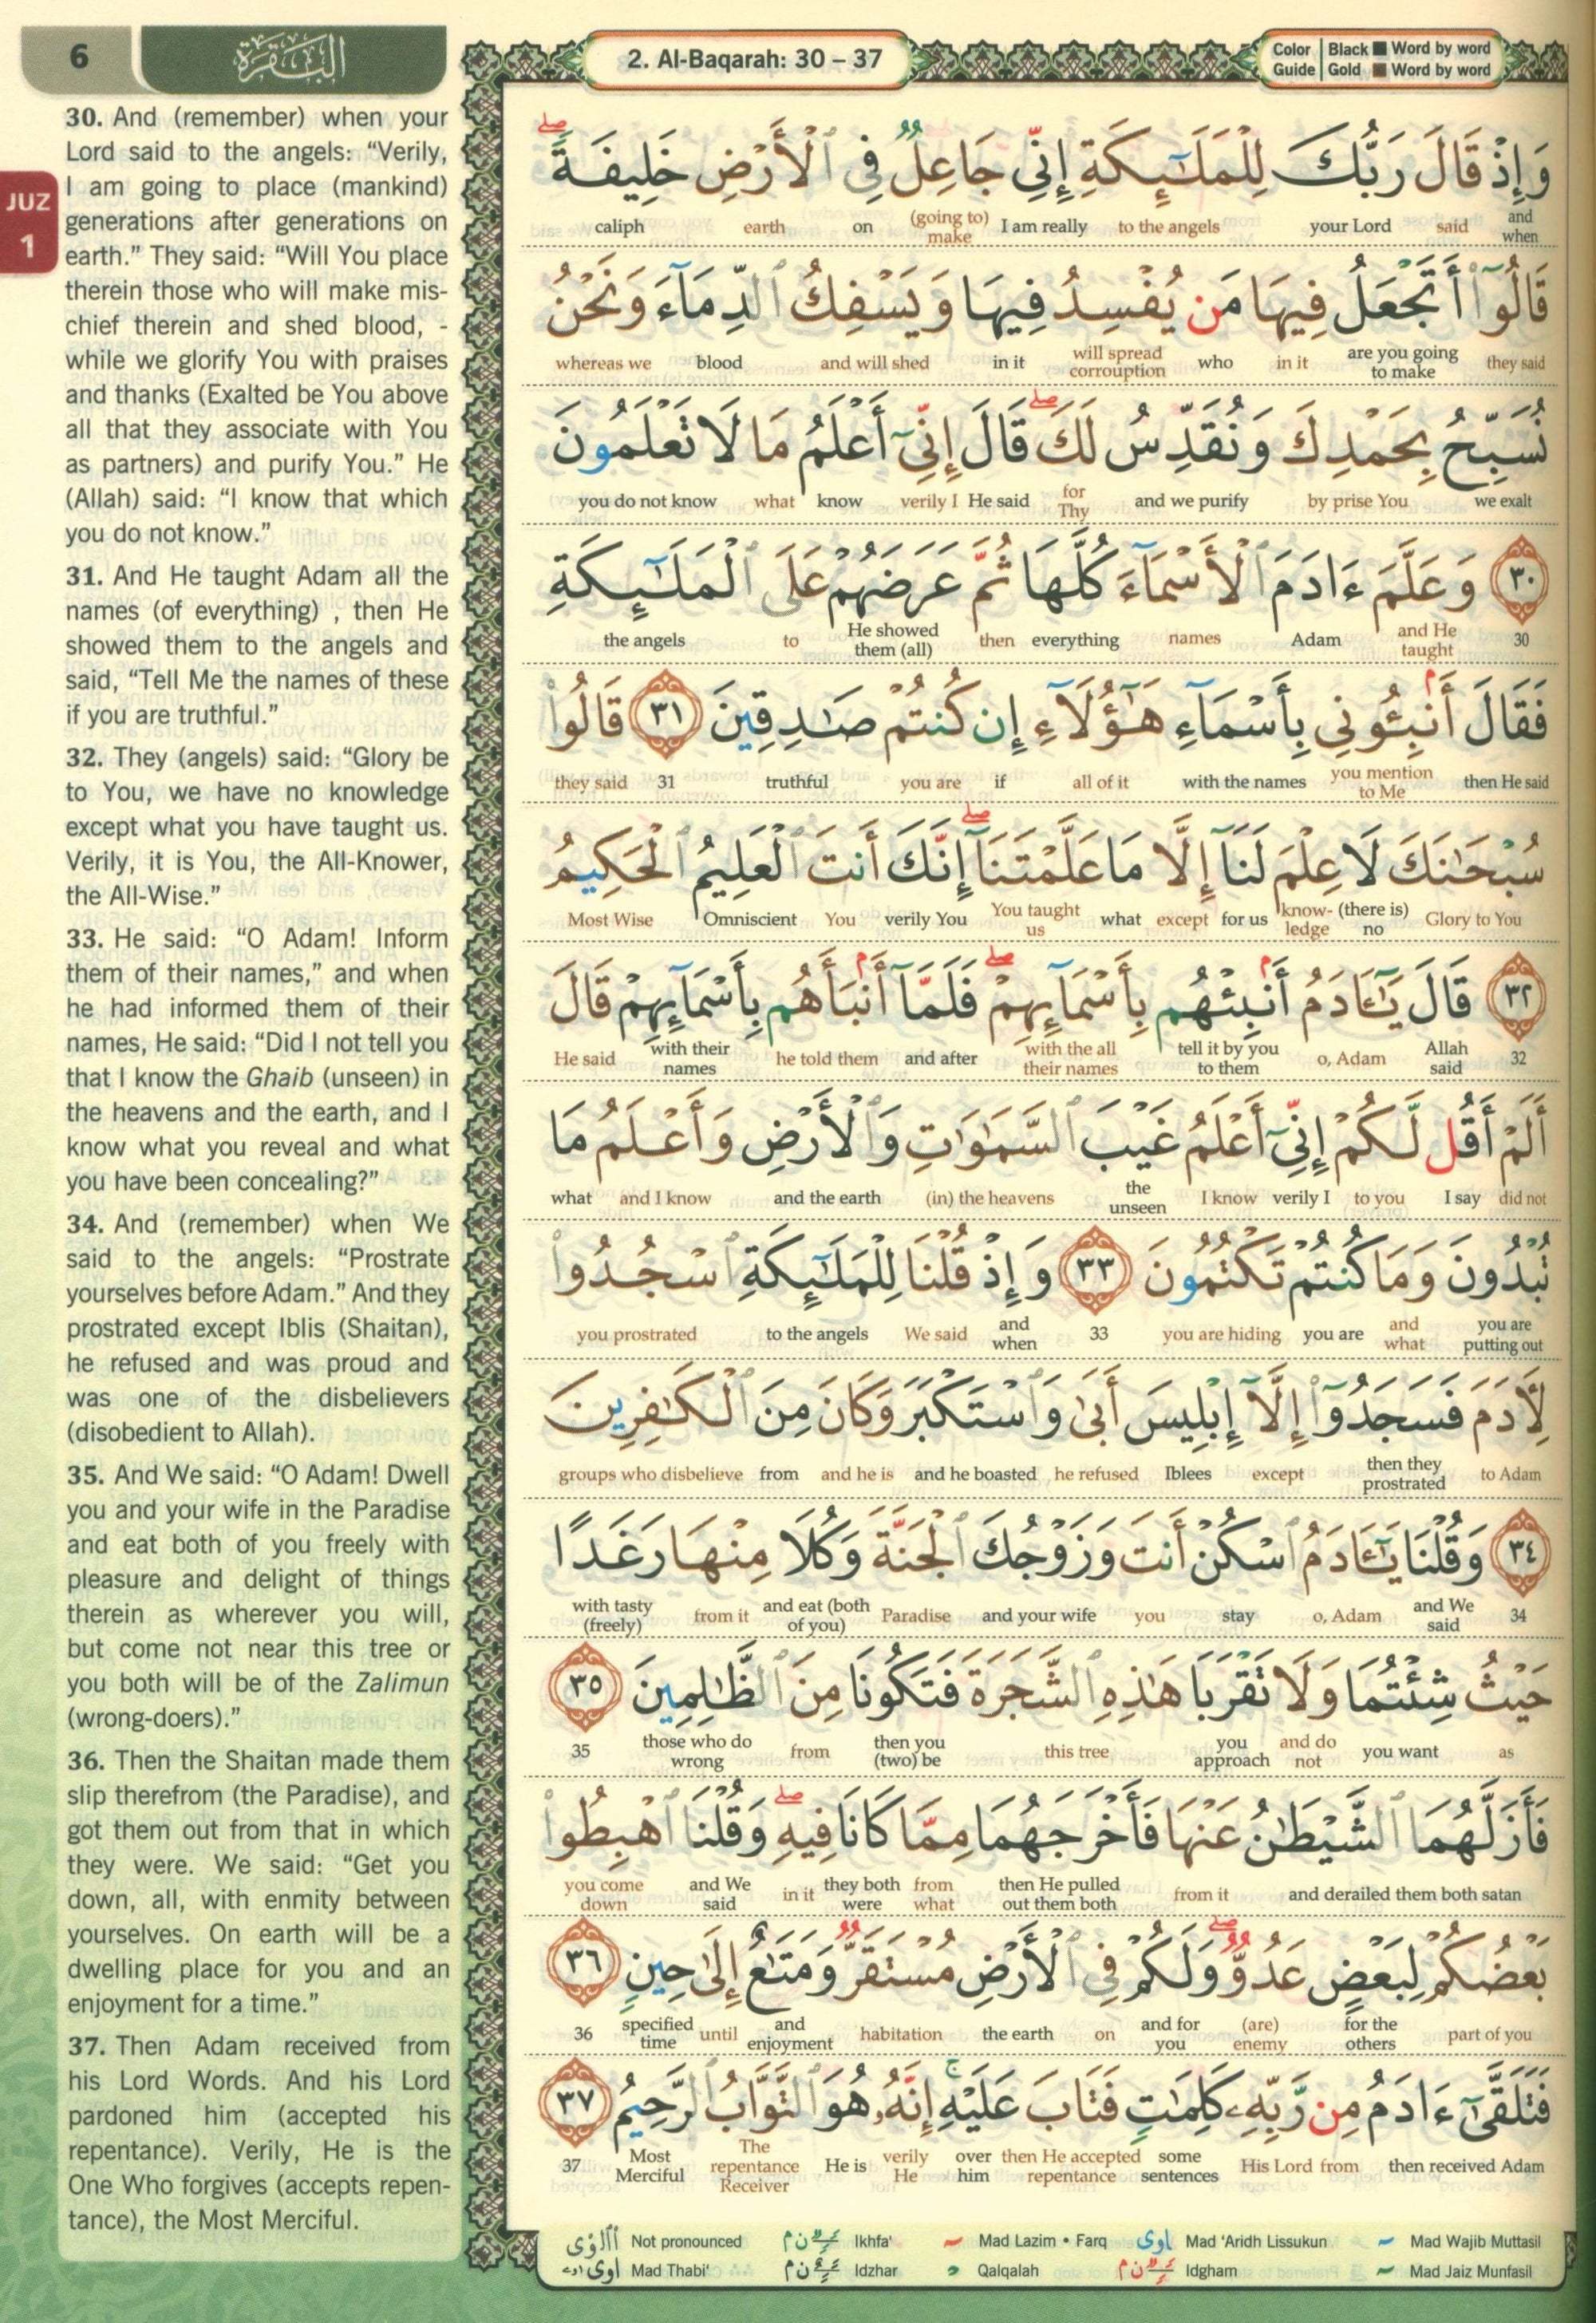 6
البقرة
2. Al-Baqarah: 30 – 37
Color Guide | Black ■ Word by word
Gold ■ Word by word
JUZ
1
30. And (remember) when your
Lord said to the angels: “Verily,
I am going to place (mankind)
generations after generations on
earth.” They said: “Will You place
therein those who will make mis-
chief therein and shed blood, -
while we glorify You with praises
and thanks (Exalted be You above
all that they associate with You
as partners) and purify You.” He
(Allah) said: “I know that which
you do not know.”
31. And He taught Adam all the
names (of everything) , then He
showed them to the angels and
said, “Tell Me the names of these
if you are truthful.”
32. They (angels) said: “Glory be
to You, we have no knowledge
except what you have taught us.
Verily, it is You, the All-Knower,
the All-Wise.”
33. He said: “O Adam! Inform
them of their names,” and when
he had informed them of their
names, He said: “Did I not tell you
that I know the Ghaib (unseen) in
the heavens and the earth, and I
know what you reveal and what
you have been concealing?”
34. And (remember) when We
said to the angels: “Prostrate
yourselves before Adam.” And they
prostrated except Iblis (Shaitan),
he refused and was proud and
was one of the disbelievers
(disobedient to Allah).
35. And We said: “O Adam! Dwell
you and your wife in the Paradise
and eat both of you freely with
pleasure and delight of things
therein as wherever you will,
but come not near this tree or
you both will be of the Zalimun
(wrong-doers).”
36. Then the Shaitan made them
slip therefrom (the Paradise), and
got them out from that in which
they were. We said: “Get you
down, all, with enmity between
yourselves. On earth will be a
dwelling place for you and an
enjoyment for a time.”
37. Then Adam received from
his Lord Words. And his Lord
pardoned him (accepted his
repentance). Verily, He is the
One Who forgives (accepts repen-
tance), the Most Merciful.
وَإِذْ قَالَ رَبُّكَ لِلْمَلَٰٓئِكَةِ إِنِّي جَاعِلٌ فِي ٱلْأَرْضِ خَلِيفَةً ۖ
caliph earth on (going to) make I am really to the angels your Lord said and when
قَالُوٓا۟ أَتَجْعَلُ فِيهَا مَن يُفْسِدُ فِيهَا وَيَسْفِكُ ٱلدِّمَآءَ وَنَحْنُ
whereas we blood and will shed in it will spread corrouption who in it are you going to make they said
نُسَبِّحُ بِحَمْدِكَ وَنُقَدِّسُ لَكَ ۖ قَالَ إِنِّيٓ أَعْلَمُ مَا لَا تَعْلَمُونَ
you do not know what know verily I He said for Thy and we purify by prise You we exalt
٣٠ وَعَلَّمَ ءَادَمَ ٱلْأَسْمَآءَ كُلَّهَا ثُمَّ عَرَضَهُمْ عَلَى ٱلْمَلَٰٓئِكَةِ
the angels to He showed them (all) then everything names Adam and He taught 30
فَقَالَ أَنۢبِـُٔونِي بِأَسْمَآءِ هَٰٓؤُلَآءِ إِن كُنتُمْ صَٰدِقِينَ ٣١ قَالُوا۟
they said 31 truthful you are if all of it with the names you mention to Me then He said
سُبْحَٰنَكَ لَا عِلْمَ لَنَآ إِلَّا مَا عَلَّمْتَنَآ ۖ إِنَّكَ أَنتَ ٱلْعَلِيمُ ٱلْحَكِيمُ
Most Wise Omniscient You verily You You taught us what except for us know-ledge (there is) no Glory to You
٣٢ قَالَ يَٰٓـَٔادَمُ أَنۢبِئْهُم بِأَسْمَآئِهِمْ ۖ فَلَمَّآ أَنۢبَأَهُم بِأَسْمَآئِهِمْ قَالَ
He said with their names he told them and after with the all their names tell it by you to them o, Adam Allah said 32
أَلَمْ أَقُل لَّكُمْ إِنِّيٓ أَعْلَمُ غَيْبَ ٱلسَّمَٰوَٰتِ وَٱلْأَرْضِ وَأَعْلَمُ مَا
what and I know and the earth (in) the heavens the unseen I know verily I to you I say did not
تُبْدُونَ وَمَا كُنتُمْ تَكْتُمُونَ ٣٣ وَإِذْ قُلْنَا لِلْمَلَٰٓئِكَةِ ٱسْجُدُوا۟
you prostrated to the angels We said and when 33 you are hiding you are and what you are putting out
لِـَٔادَمَ فَسَجَدُوٓا۟ إِلَّآ إِبْلِيسَ أَبَىٰ وَٱسْتَكْبَرَ وَكَانَ مِنَ ٱلْكَٰفِرِينَ
groups who disbelieve from and he is and he boasted he refused Iblees except then they prostrated to Adam
٣٤ وَقُلْنَا يَٰٓـَٔادَمُ ٱسْكُنْ أَنتَ وَزَوْجُكَ ٱلْجَنَّةَ وَكُلَا مِنْهَا رَغَدًا
with tasty (freely) from it and eat (both of you) Paradise and your wife you stay o, Adam and We said 34
حَيْثُ شِئْتُمَا وَلَا تَقْرَبَا هَٰذِهِ ٱلشَّجَرَةَ فَتَكُونَا مِنَ ٱلظَّٰلِمِينَ ٣٥
35 those who do wrong from then you (two) be this tree you approach and do not you want as
فَأَزَلَّهُمَا ٱلشَّيْطَٰنُ عَنْهَا فَأَخْرَجَهُمَا مِمَّا كَانَا فِيهِ ۖ وَقُلْنَا ٱهْبِطُوا۟
you come down and We said in it they both were from what then He pulled out them both from it and derailed them both satan
بَعْضُكُمْ لِبَعْضٍ عَدُوٌّ ۖ وَلَكُمْ فِي ٱلْأَرْضِ مُسْتَقَرٌّ وَمَتَٰعٌ إِلَىٰ حِينٍ ٣٦
36 specified time until and enjoyment habitation the earth on and for you (are) enemy for the others part of you
فَتَلَقَّىٰٓ ءَادَمُ مِن رَّبِّهِۦ كَلِمَٰتٍ فَتَابَ عَلَيْهِ ۚ إِنَّهُۥ هُوَ ٱلتَّوَّابُ ٱلرَّحِيمُ ٣٧
37 Most Merciful The repentance Receiver He is verily He over him then He accepted repentance some sentences His Lord from then received Adam
Not pronounced ن م Ikhfa' Mad Lazim • Farq اوى Mad 'Aridh Lissukun Mad Wajib Muttasil
اوى Mad Thabi' ن م Idzhar Qalqalah ن م Idgham Mad Jaiz Munfasil